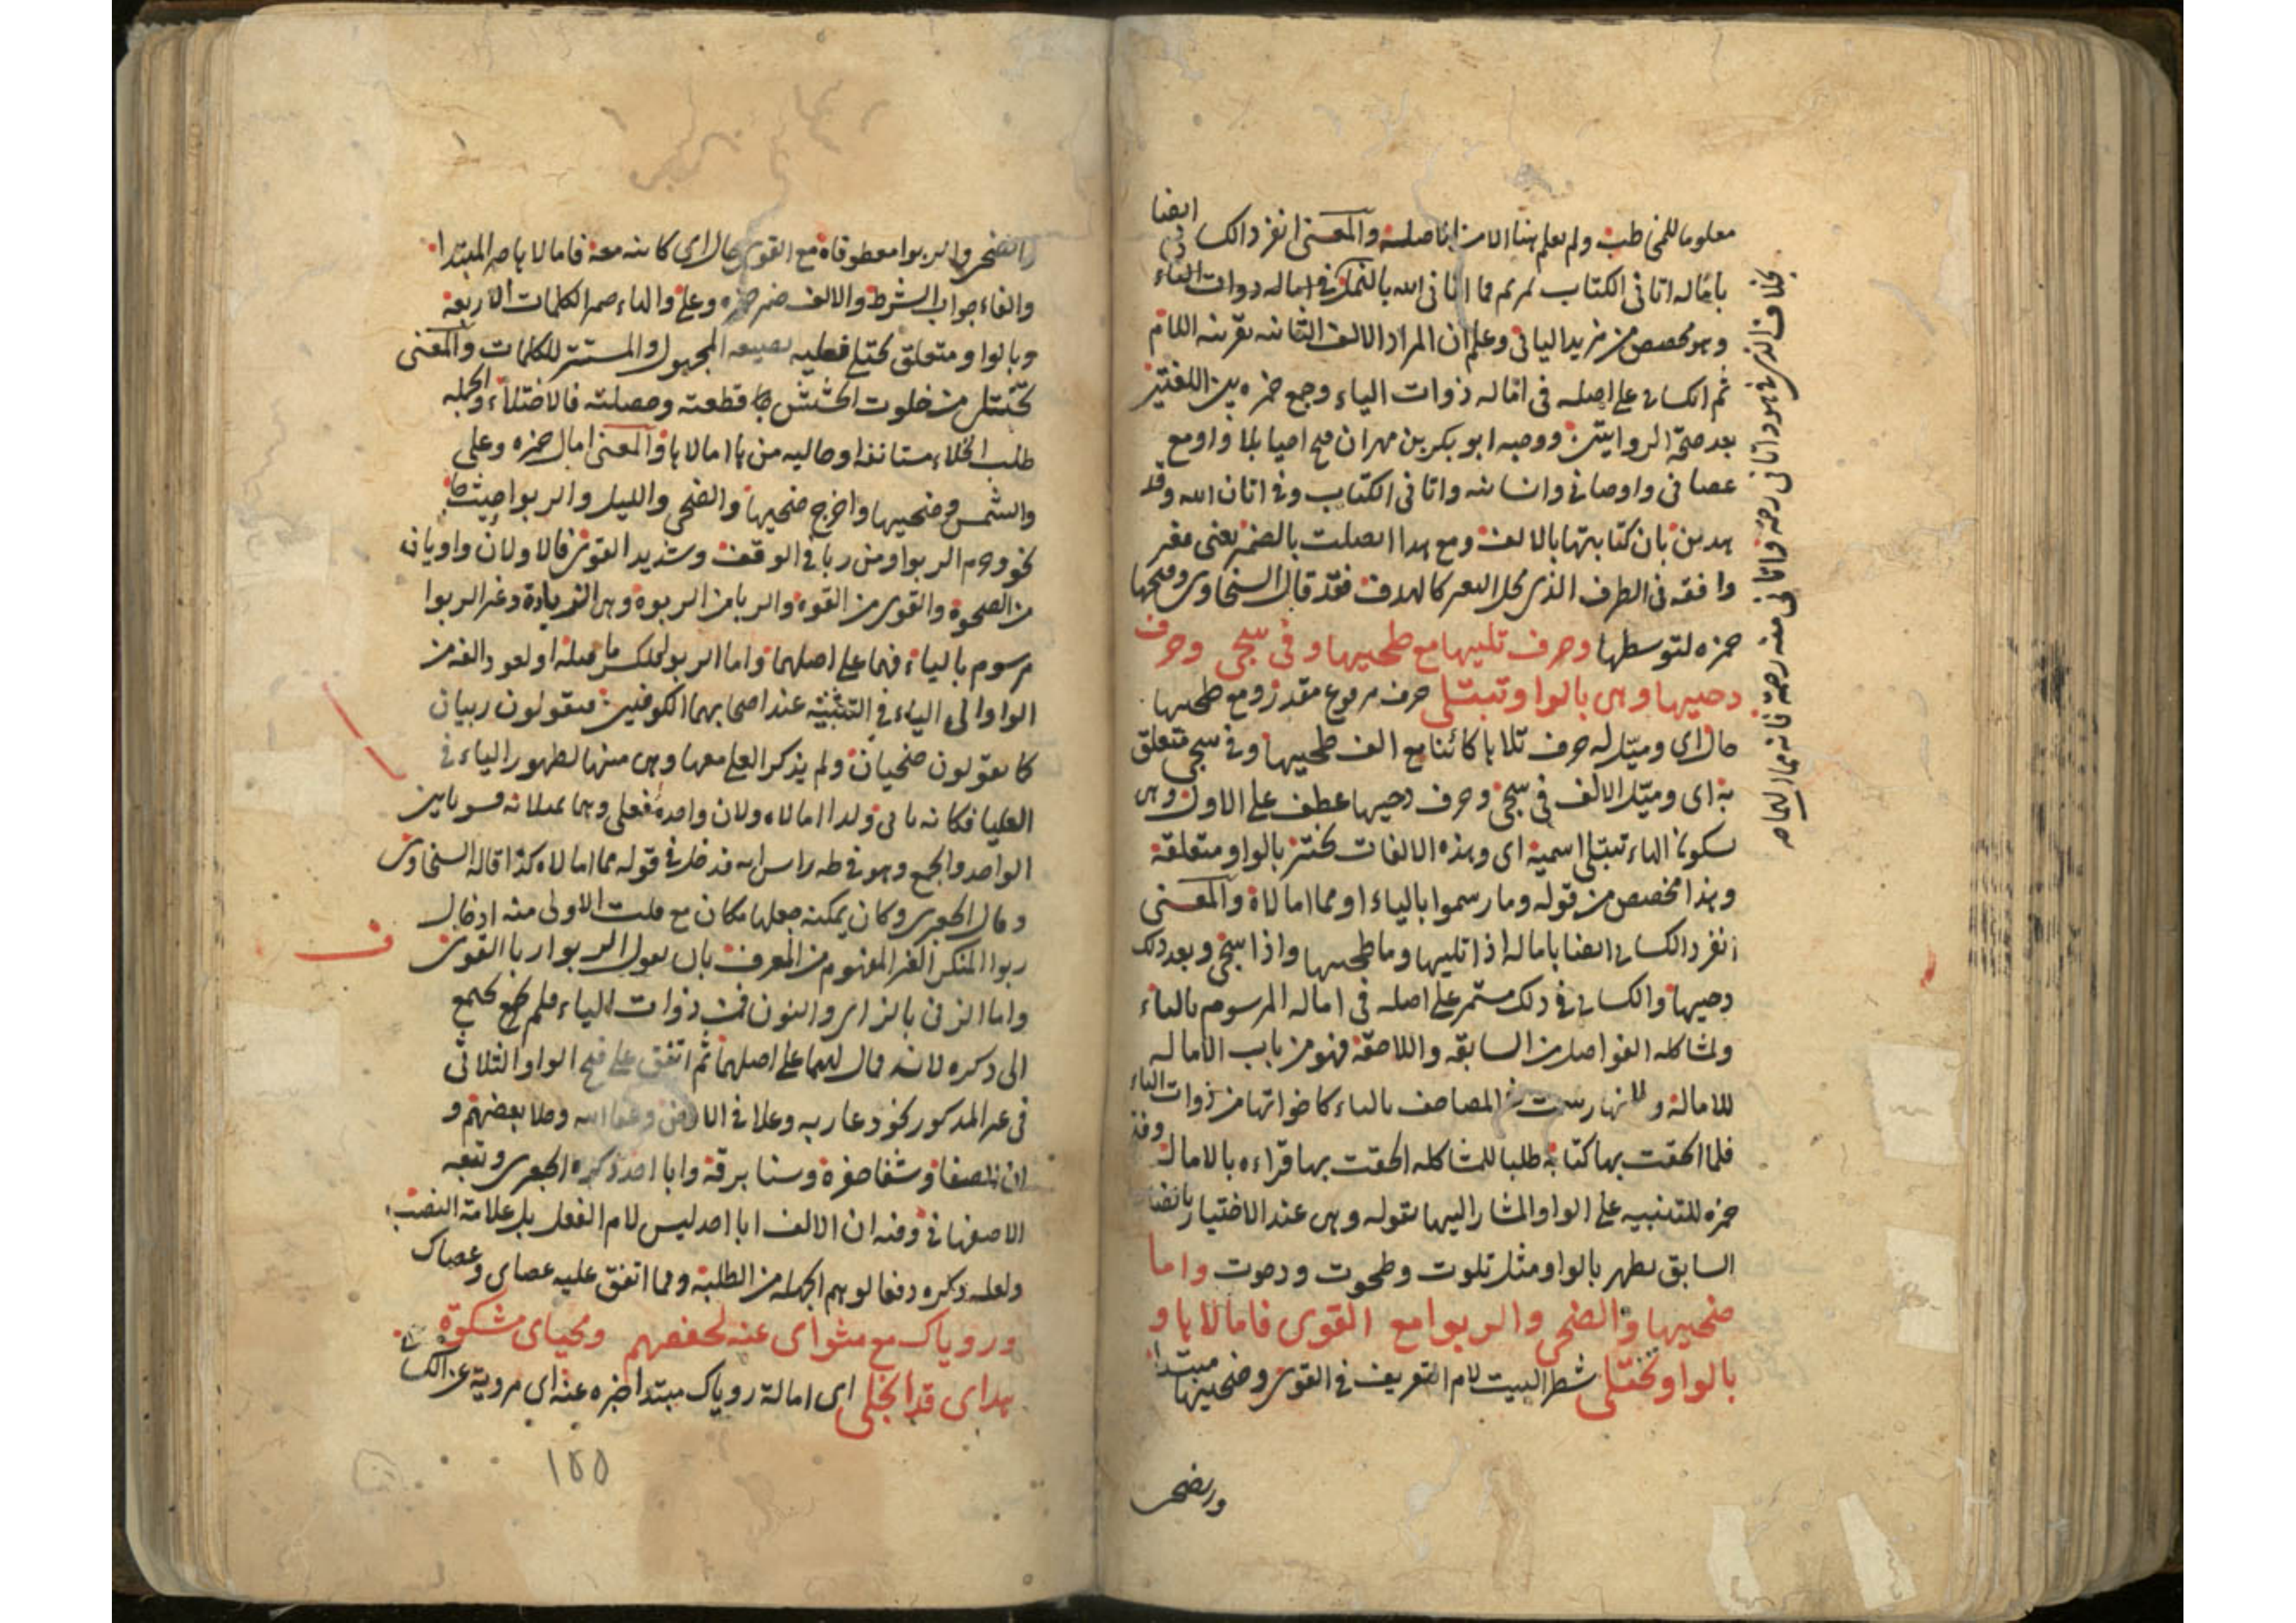 معلوما للمخاطب ولم يعلم هنا الا من اصله والمعنى انفرد الك ايضا
بامالة اتانى الكتاب بمريم فما اتانى الله بالنمل فى امالة ذوات الياء
وهو مخصص من مزيد اليائى وعلم ان المراد الالف الثانية بقرينة اللام
ثم الكسائى على اصله فى امالة ذوات الياء وجمع حمزه بين اللغتين
بعد صحة الروايتين ووجه ابو بكر بن مهران فتح احيا بلا واو مع
عصانى واوصانى وانسانيه واتانى الكتاب وفى اتان الله وقد
هدين بان كتابتها بالالف ومع هذا اتصلت بالضمير يعنى فغير
وافقه فى الطرف الذى محل التغير كالهدف فقد قال السخاوى وفتحها
حمزه لتوسطها وحرف تليها مع طحيها وفى سجى وحرف
دحيها وهى بالواو تبتلى حرف مرفوع مقدر ومع طحيها
حال اى وميل له حرف تلاها كائنا مع الف طحيها وفى سجى متعلق
به اى وميل الالف فى سجى وحرف دحيها عطف على الاول وهى
بسكون الهاء تبتلى اسمية اى وهذه الالفات تختبر بالواو متعلقة
وهذا مخصص من قوله وما رسموا بالياء او مما امالاه والمعنى
انفرد الكسائى ايضا بامالة اذا تليها وما طحيها واذا سجى وبعد ذلك
دحيها والكسائى فى ذلك مستمر على اصله فى امالة المرسوم بالياء
ولمشاكلة الفواصل من السابقة واللاحقة فهو من باب الامالة
للامالة ولانها رسمت فى المصاحف بالياء كاخواتها من ذوات الياء
فلما الحقت بها كتابة طلبا للمشاكلة الحقت بها قراءه بالامالة وفتح
حمزه للتنبيه على الواو المشار اليها بقوله وهى عند الاختبار
السابق يظهر بالواو مثل تلوت وطحوت ودحوت واما
ضحيها والضحى والربوا مع القوى فامالاها و
بالواو تختلى شطر البيت لام التعريف فى القوى وضحيها مبتدا
والضحى
بخلاف الذى فى هود اتانى رحمة واتانى منه رحمة فانه ممال
والضحى والربوا معطوفاه مع القوى حال اى كائنه معه فامالاها خبر المبتدا
والفاء جواب الشرط والالف ضمير حمزه وعلى والهاء ضمير الكلمات الاربعة
وبالواو متعلق تختلى فعلية بصيغة المجهول والمستتر للكلمات والمعنى
تختلى من خلوت الحشيش قطعته وحصلته فالاختلاء والجمله
طلب الخلاء مستانفة او حالية من ها امالاها والمعنى امال حمزه وعلى
والشمس وضحيها واخرج ضحيها والضحى والليل والربوا حيث جا
نحو وحرم الربوا ومن ربا فى الوقف وشديد القوى فالاولان واويان
من الضحوة والقوى من القوة والربا من الربوة وهى الزيادة وغير الربوا
مرسوم بالياء فهما على اصلهما واما الربو فلكسر ما قبله او لعود الفه من
الواو الى الياء فى التثنية عند اصحابهما الكوفيين فيقولون ربيان
كما يقولون ضحيان ولم يذكر العلى معها وهى منها لظهور الياء فى
العليا فكانه يائى ولذا امالاه ولان واحده فعلى وهما يميلانه فسويا بين
الواحد والجمع وهو فى طه راس اية فدخل فى قوله مما امالاه كذا قاله السخاوى
وقال الجعبرى وكان يمكنه جعلها مكان مع قلت الاولى منه ادخال
ربوا المنكر الغير المفهوم من المعرف بان يقول الربوا ربا القوى
واما الزنى بالزاى والنون فمن ذوات الياء فلم يحتج
الى ذكره لانه ممال لهما على اصلهما ثم اتفق على فتح الواو الثلاثى
فى غير المذكور نحو دعا ربه وعلا فى الارض وعفا الله وخلا بعضهم و
ان الصفا وشفا حفرة وسنا برقه وابا احد ذكره الجعبرى وتبعه
الاصفهانى وفيه ان الالف ابا احد ليس لام الفعل بل علامة النصب
ولعله ذكره دفعا لوهم الجهلة من الطلبة ومما اتفق عليه عصاى وعصاك
ورءياك مع مثواى عنه لحفصهم ومحياى مشكوة
هداى قد انجلى اى امالة روياك مبتدا خبره عنه اى مروية عن الكسائى
١٥٥